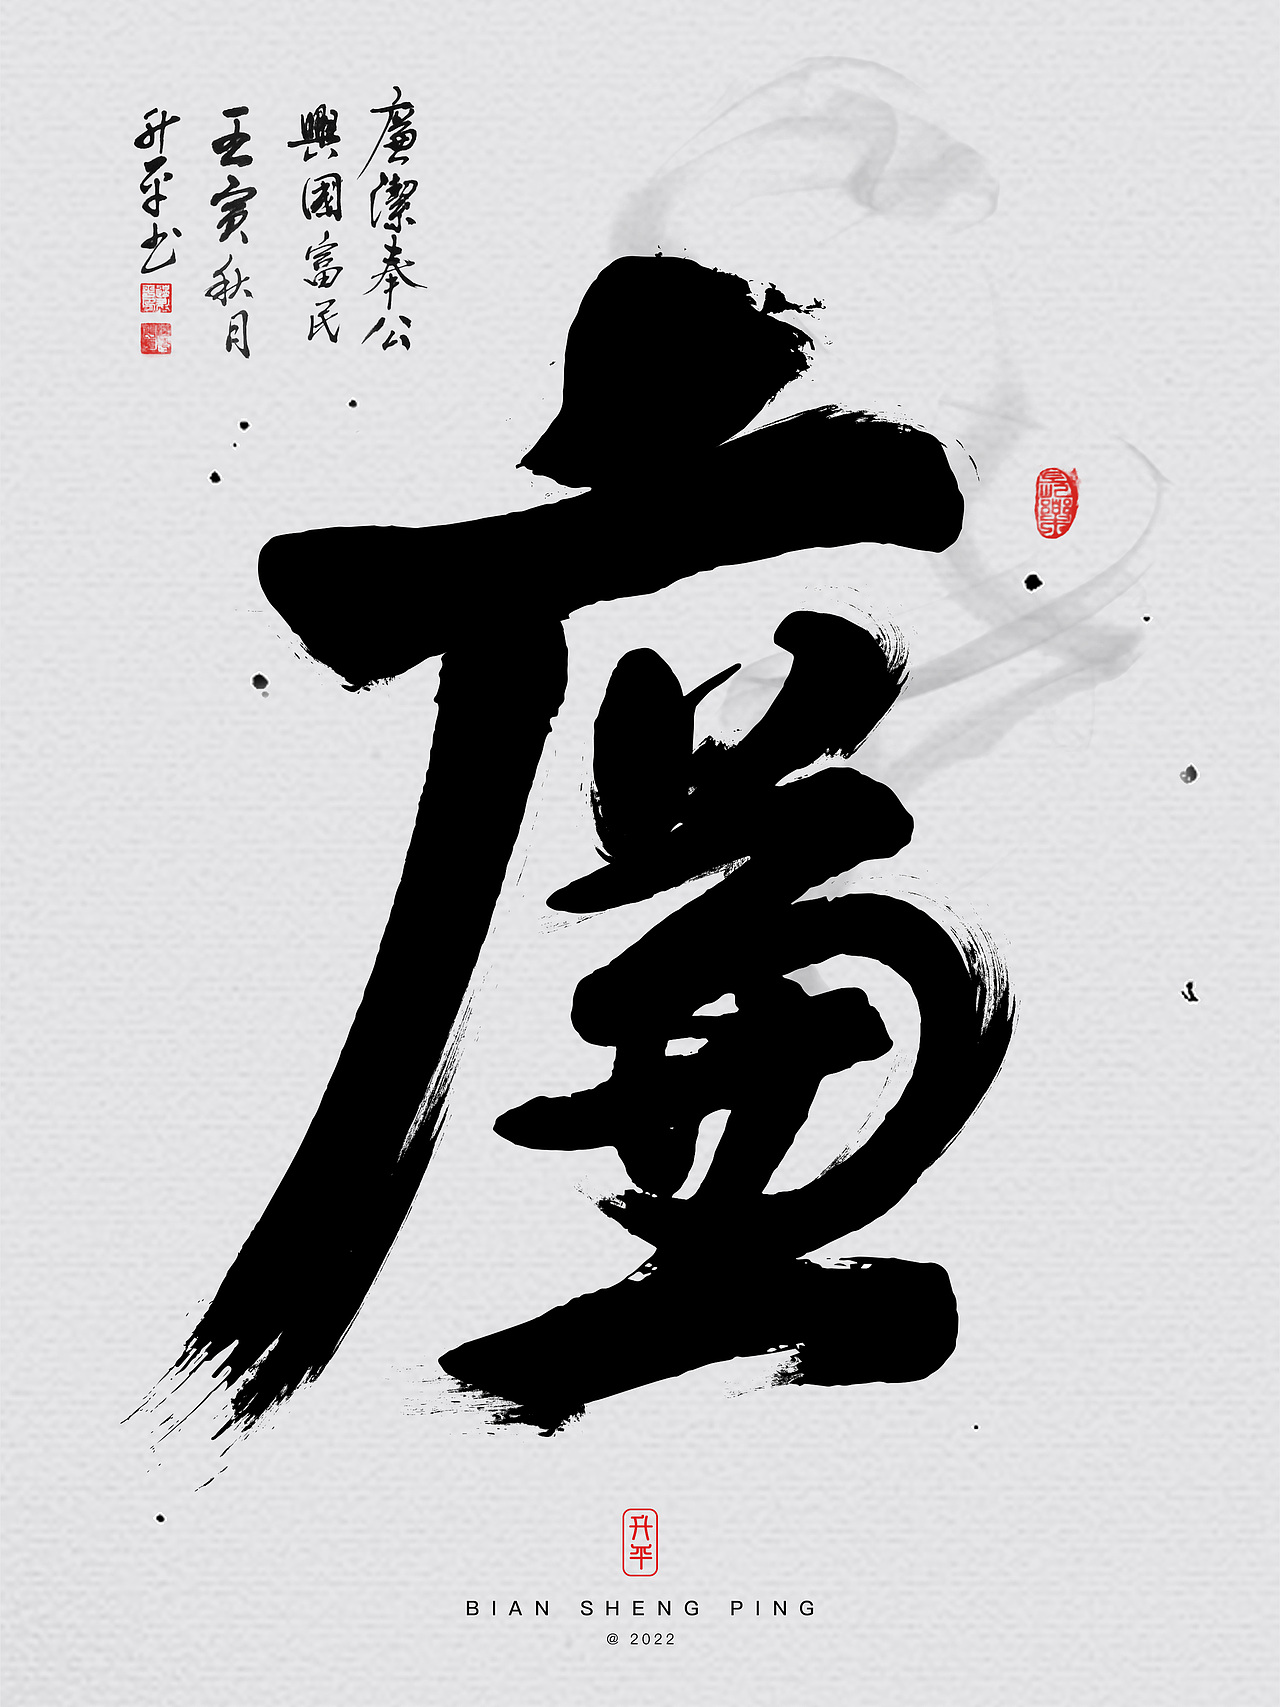 廉潔奉公
興國富民
壬寅秋月
升平书
廉
升平
BIAN SHENG PING
@ 2022